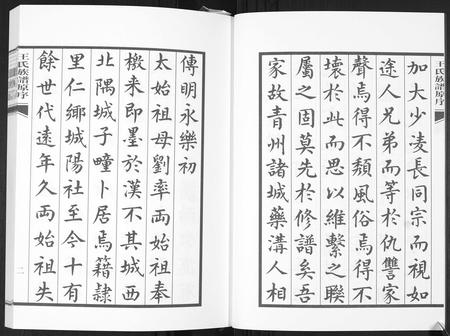 王氏族譜原序
加大少凌長同宗而視如
途人兄弟而等於仇讐家
聲焉得不頹風俗焉得不
壞於此而思以維繫之聯
屬之固莫先於修譜矣吾
家故青州諸城藥溝人相
傳明永樂初
太始祖母劉率両始祖奉
檄来即墨於漢不其城西
北隅城子疃卜居焉籍隷
里仁鄉城陽社至今十有
餘世代遠年久両始祖失
王氏族譜原序
二